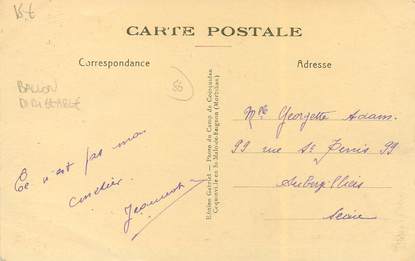 15€
CARTE POSTALE
Correspondance
Adresse
BALLON
DIRIGEABLE
56
Ce n'est pas mon
Jeannot
Edition Gabriel - Place du Camp de Coëtquidan
Coquinville en St-Malo-de-Beignon (Morbihan)
Mlle Georgette Adam
99 rue St Denis 99
Aubervilliers
Seine